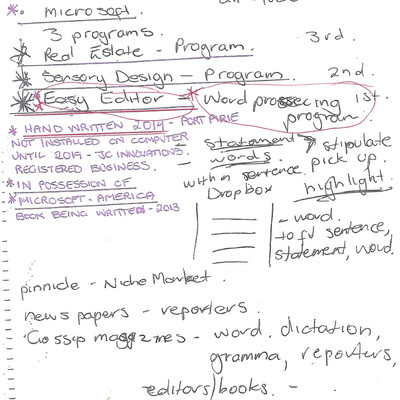 * Microsoft.
3 programs. 3rd.
* Real Estate - Program
* Sensory Design - Program. 2nd.
* Easy Editor * Word prosecing 1st.
program
* HAND WRITTEN 2014 - PORT PIRIE
NOT INSTALLED ON COMPUTER
UNTIL 2019 - JC INNOVATIONS.
REGISTERED BUSINESS.
* IN POSSESSION OF
* MICROSOFT - AMERICA
BOOK BEING WRITTEN - 2013
statement → stipulate
words. pick up.
- within sentence.
Dropbox highlight.
- word.
sentence,
statement, word.
pinnicle - Niche Market.
news papers - reporters.
Gossip magazines - word, dictation,
gramma, reporters,
editors/books. -